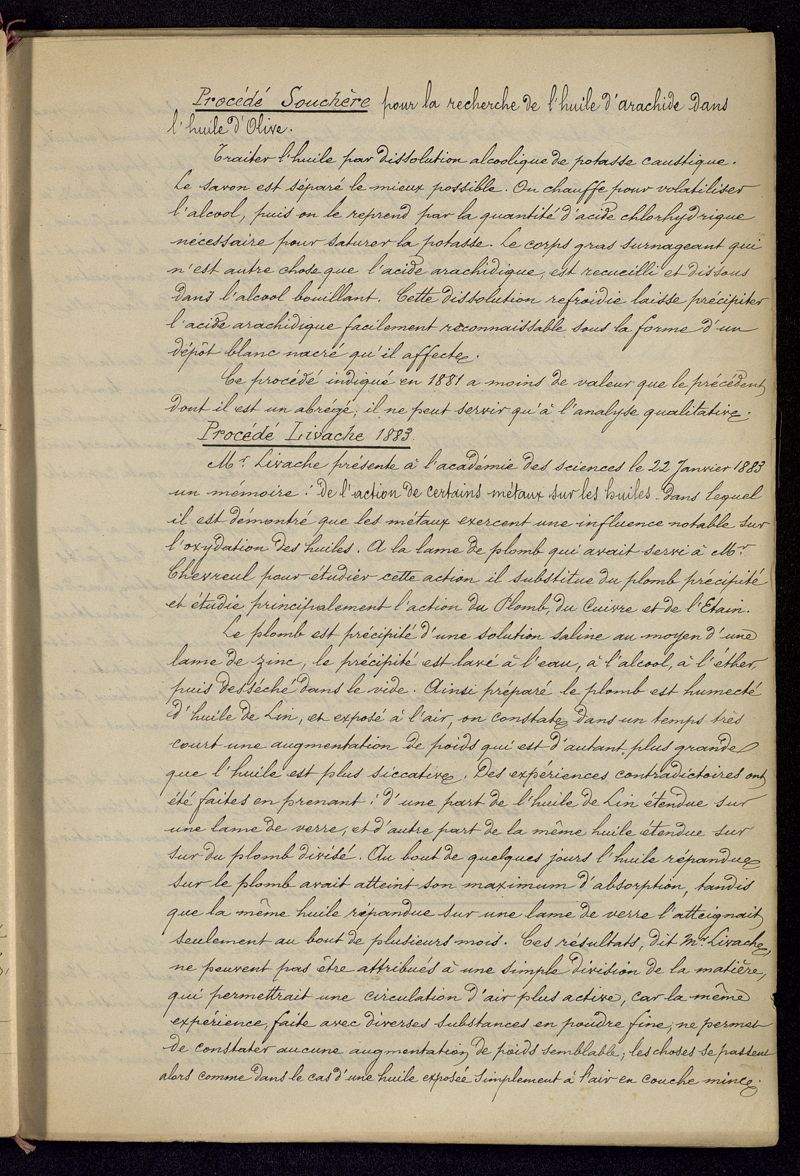 Procédé Souchère pour la recherche de l'huile d'arachide dans
l'huile d'Olive.
Traiter l'huile par dissolution alcoolique de potasse caustique.
Le savon est séparé le mieux possible. On chauffe pour volatiliser
l'alcool, puis on le reprend par la quantité d'acide chlorhydrique
nécessaire pour saturer la potasse. Le corps gras surnageant qui
n'est autre chose que l'acide arachidique, est recueilli et dissous
dans l'alcool bouillant. Cette dissolution refroidie laisse précipiter
l'acide arachidique facilement reconnaissable sous la forme d'un
dépôt blanc nacré qu'il affecte.
Ce procédé indiqué en 1881 a moins de valeur que le précédent
dont il est un abrégé; il ne peut servir qu'à l'analyse qualitative.
Procédé Livache 1883.
Mr. Livache présente à l'académie des sciences le 22 Janvier 1883
un mémoire : De l'action de certains métaux sur les huiles - dans lequel
il est démontré que les métaux exercent une influence notable sur
l'oxydation des huiles. A la lame de plomb qui avait servi à Mr.
Chevreul pour étudier cette action il substitue du plomb précipité
et étudie principalement l'action du Plomb, du Cuivre et de l'Etain.
Le plomb est précipité d'une solution saline au moyen d'une
lame de zinc, le précipité est lavé à l'eau, à l'alcool, à l'éther,
puis desséché dans le vide. Ainsi préparé le plomb est humecté
d'huile de Lin, et exposé à l'air, on constate dans un temps très
court une augmentation de poids qui est d'autant plus grande
que l'huile est plus siccative. Des expériences contradictoires ont
été faites en prenant : d'une part de l'huile de Lin étendue sur
une lame de verre, et d'autre part de la même huile étendue sur
sur du plomb divisé. Au bout de quelques jours l'huile répandue
sur le plomb avait atteint son maximum d'absorption, tandis
que la même huile répandue sur une lame de verre l'atteignait
seulement au bout de plusieurs mois. Ces résultats, dit Mr. Livache,
ne peuvent pas être attribués à une simple division de la matière,
qui permettrait une circulation d'air plus active, car la même
expérience, faite avec diverses substances en poudre fine, ne permet
de constater aucune augmentation de poids semblable; les choses se passent
alors comme dans le cas d'une huile exposée simplement à l'air en couche mince.